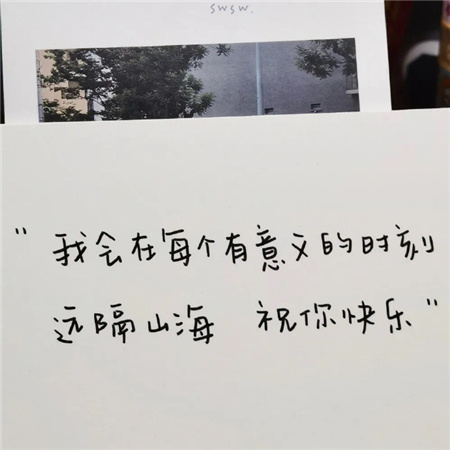 swsw.
“我会在每个有意义的时刻
远隔山海 祝你快乐”